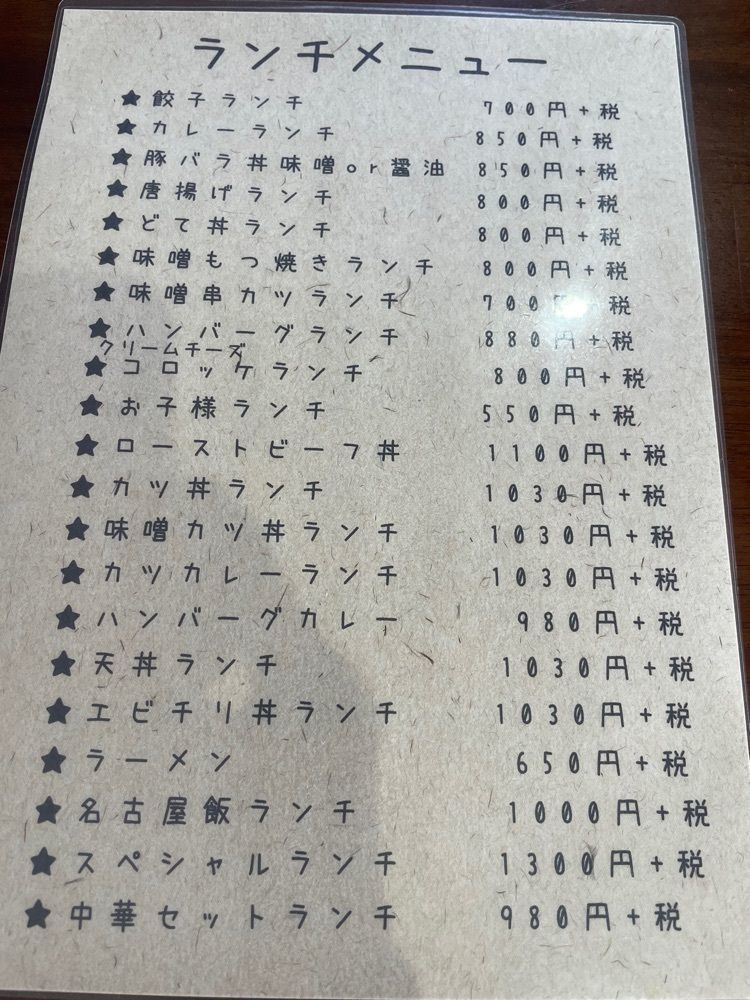 ランチメニュー
★餃子ランチ 700円+税
★カレーランチ 850円+税
★豚バラ丼味噌or醤油 850円+税
★唐揚げランチ 800円+税
★どて丼ランチ 800円+税
★味噌もつ焼きランチ 800円+税
★味噌串カツランチ 700円+税
★ハンバーグランチ 880円+税
クリームチーズ
★コロッケランチ 800円+税
★お子様ランチ 550円+税
★ローストビーフ丼 1100円+税
★カツ丼ランチ 1030円+税
★味噌カツ丼ランチ 1030円+税
★カツカレーランチ 1030円+税
★ハンバーグカレー 980円+税
★天丼ランチ 1030円+税
★エビチリ丼ランチ 1030円+税
★ラーメン 650円+税
★名古屋飯ランチ 1000円+税
★スペシャルランチ 1300円+税
★中華セットランチ 980円+税